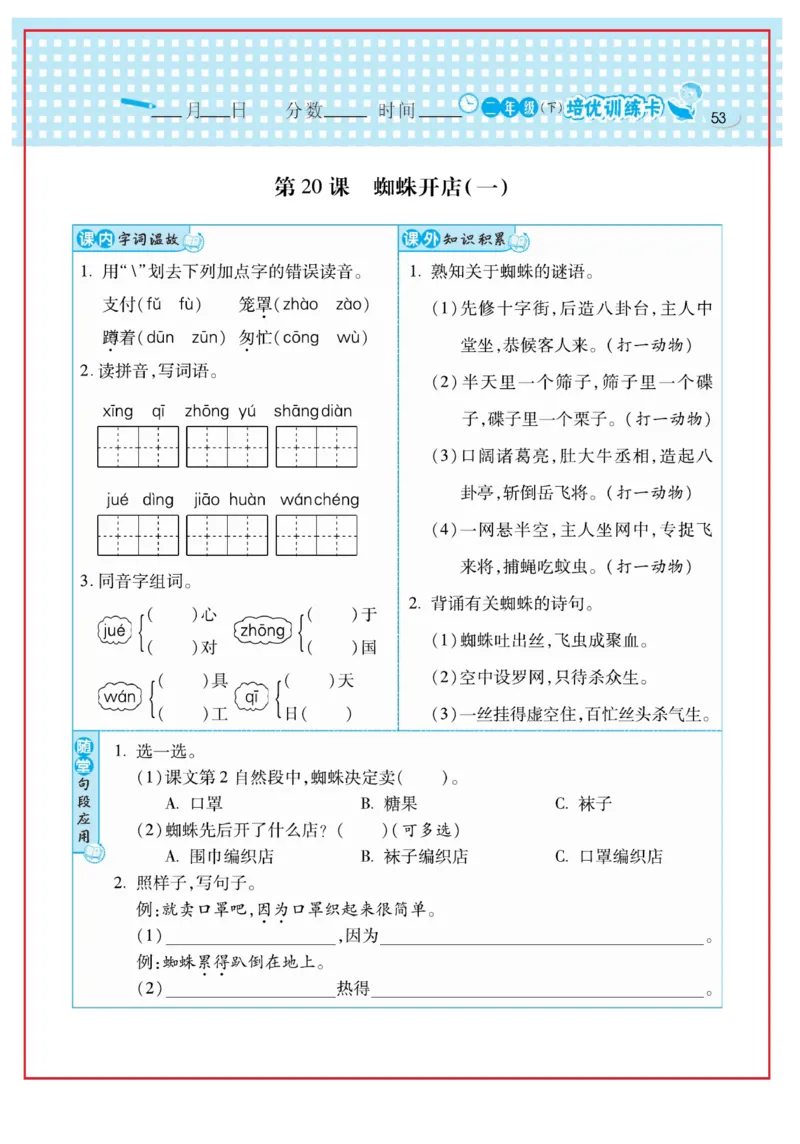 ____月____日 分数_____ 时间_____ 二年级(下) 培优训练卡 53
第 20 课 蜘蛛开店(一)
课内字词温故
1. 用“\”划去下列加点字的错误读音。
支付(fǔ fù) 笼罩(zhào zào)
蹲着(dūn zūn) 匆忙(cōng wù)
2. 读拼音,写词语。
xīng qī zhōng yú shāng diàn
jué dìng jiāo huàn wán chéng
3. 同音字组词。
jué ( )心 ( )对 zhōng ( )于 ( )国
wán ( )具 ( )工 qī ( )天 日( )
课外知识积累
1. 熟知关于蜘蛛的谜语。
(1)先修十字街,后造八卦台,主人中
堂坐,恭候客人来。(打一动物)
(2)半天里一个筛子,筛子里一个碟
子,碟子里一个栗子。(打一动物)
(3)口阔诸葛亮,肚大牛丞相,造起八
卦亭,斩倒岳飞将。(打一动物)
(4)一网悬半空,主人坐网中,专捉飞
来将,捕蝇吃蚊虫。(打一动物)
2. 背诵有关蜘蛛的诗句。
(1)蜘蛛吐出丝,飞虫成聚血。
(2)空中设罗网,只待杀众生。
(3)一丝挂得虚空住,百忙丝头杀气生。
随堂句段应用
1. 选一选。
(1)课文第 2 自然段中,蜘蛛决定卖( )。
A. 口罩 B. 糖果 C. 袜子
(2)蜘蛛先后开了什么店?( )(可多选)
A. 围巾编织店 B. 袜子编织店 C. 口罩编织店
2. 照样子,写句子。
例:就卖口罩吧,因为口罩织起来很简单。
(1)____________________,因为________________________________________。
例:蜘蛛累得趴倒在地上。
(2)____________________热得________________________________________。